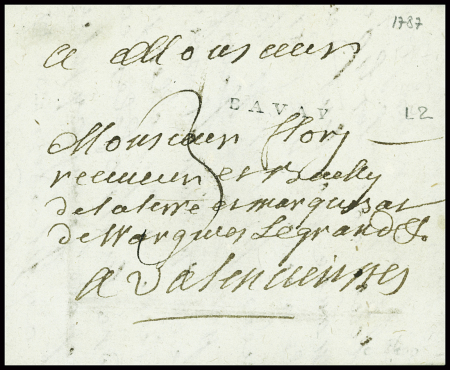 1787
a Monsieur
BAVAY
L2
Monsieur flory
receveur et Bailly
de la terre et marquisat
de Wargnies Le grand &.
a valenciennes
3